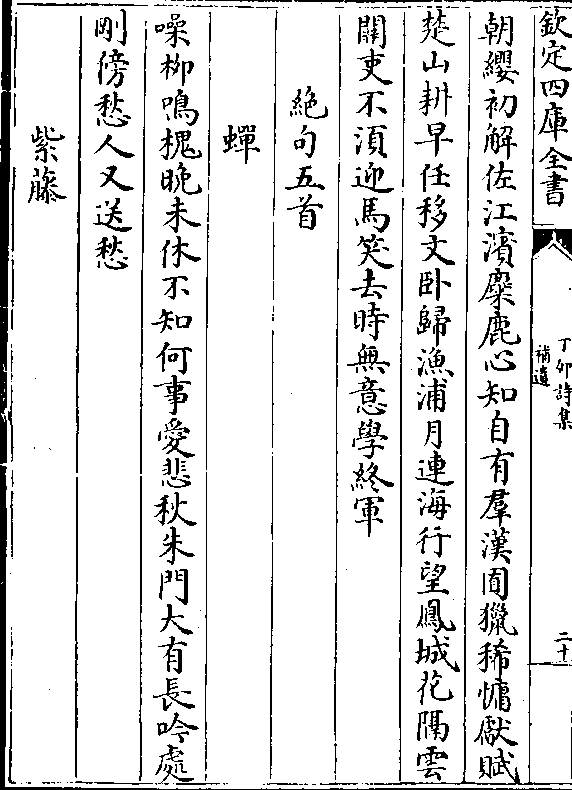 欽定四庫全書
丁卯詩集
補遺
二十
朝纓初解佐江濱麋鹿心知自有羣漢囿獵稀慵獻賦
楚山耕早任移文卧歸漁浦月連海行望鳳城花隔雲
關吏不湏迎馬笑去時無意學終軍
絶句五首
蟬
噪柳鳴槐晚未休不知何事愛悲秋朱門大有長吟處
剛傍愁人又送愁
紫藤